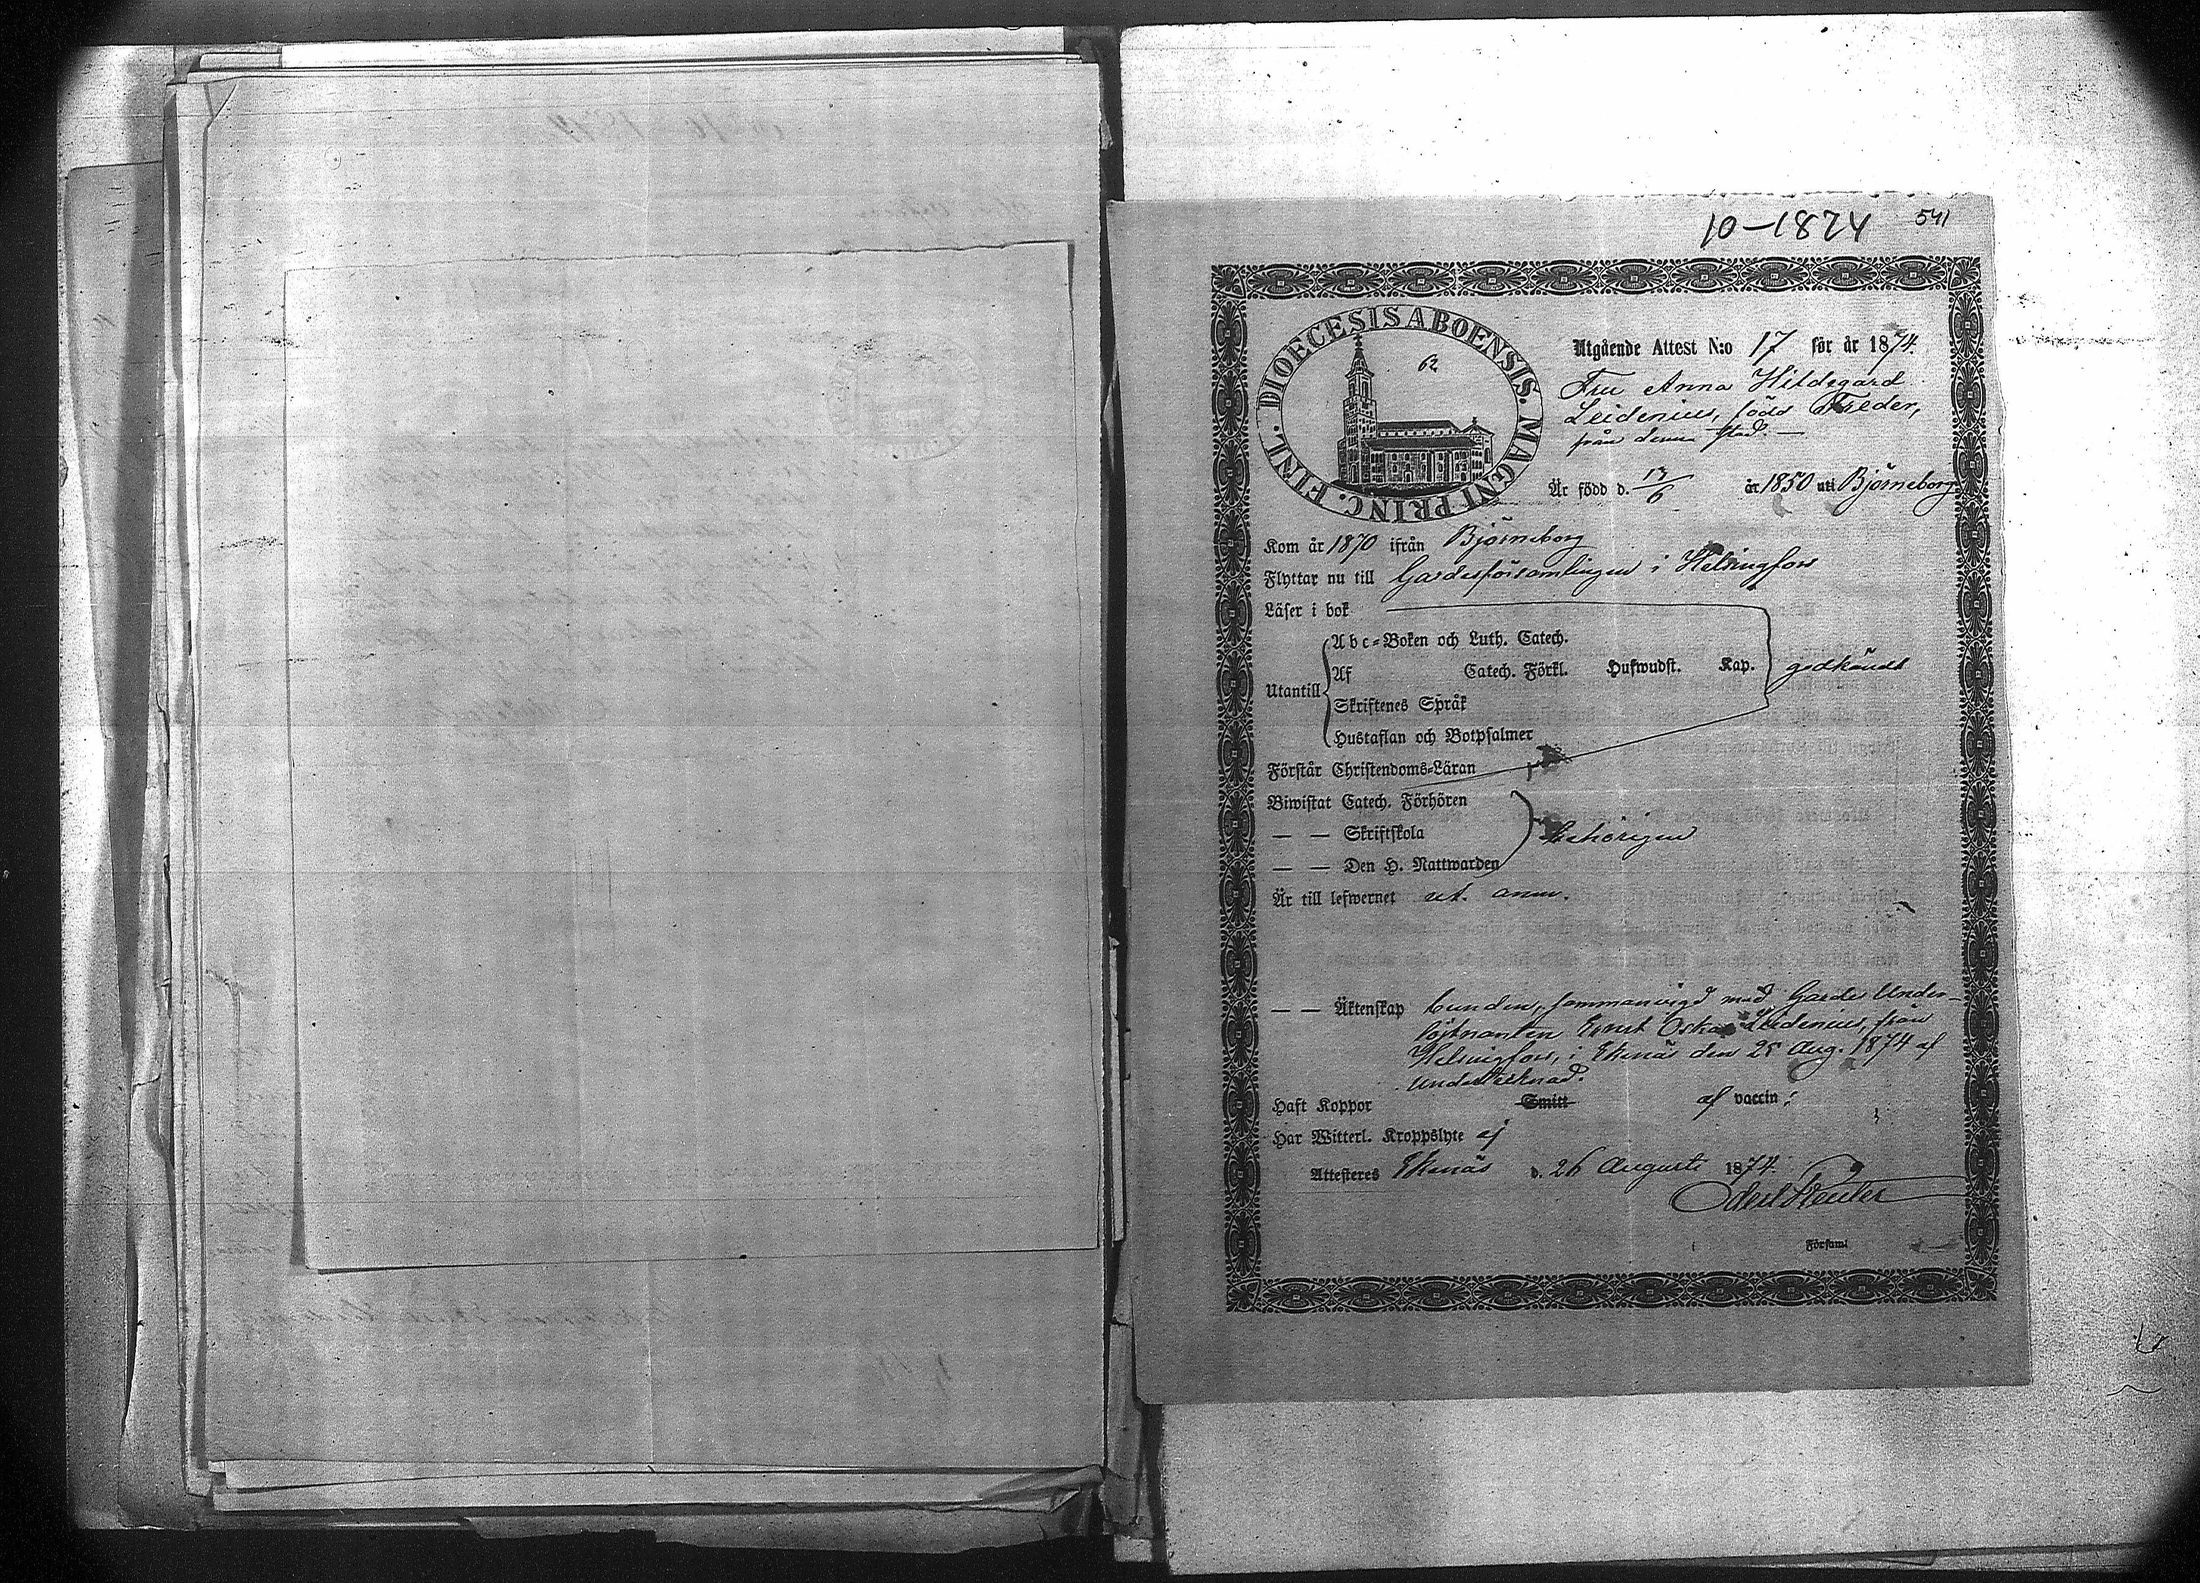 10-1874 541
DIOECESIS ABOENSIS. MAGNI PRINC. FINL.
62
Utgående Attest N:o 17 för år 1874.
Fru Anna Hildegard
Leidenius, född
från denna stad.
Är född d. 17/6 år 1850 uti Björneborg
Kom år 1870 ifrån Björneborg
Flyttar nu till Gardesförsamlingen i Helsingfors
Läser i bok
Abc-Boken och Luth. Catech.
Utantill Af Catech. Förkl. Hufwudst. Kap. godkändt
Skriftenes Språk
Hustaflan och Botpsalmer
Förstår Christendoms-Läran
Biwistat Catech. Förhören
— — Skriftskola behörigen
— — Den H. Nattwarden
Är till lefwernet ut. anm.
— — Äktenskap bunden, sammanvigd med Gardes Under-
löjtnanten Ernst Oskar Leidenius, från
Helsingfors, i Ekenäs den 25 Aug. 1874 af
undertecknad.
Haft Koppor Smitt af vaccin:
Har Witterl. Kroppslyte ej
Attesteras Ekenäs d. 26 Augusti 1874.
Församl